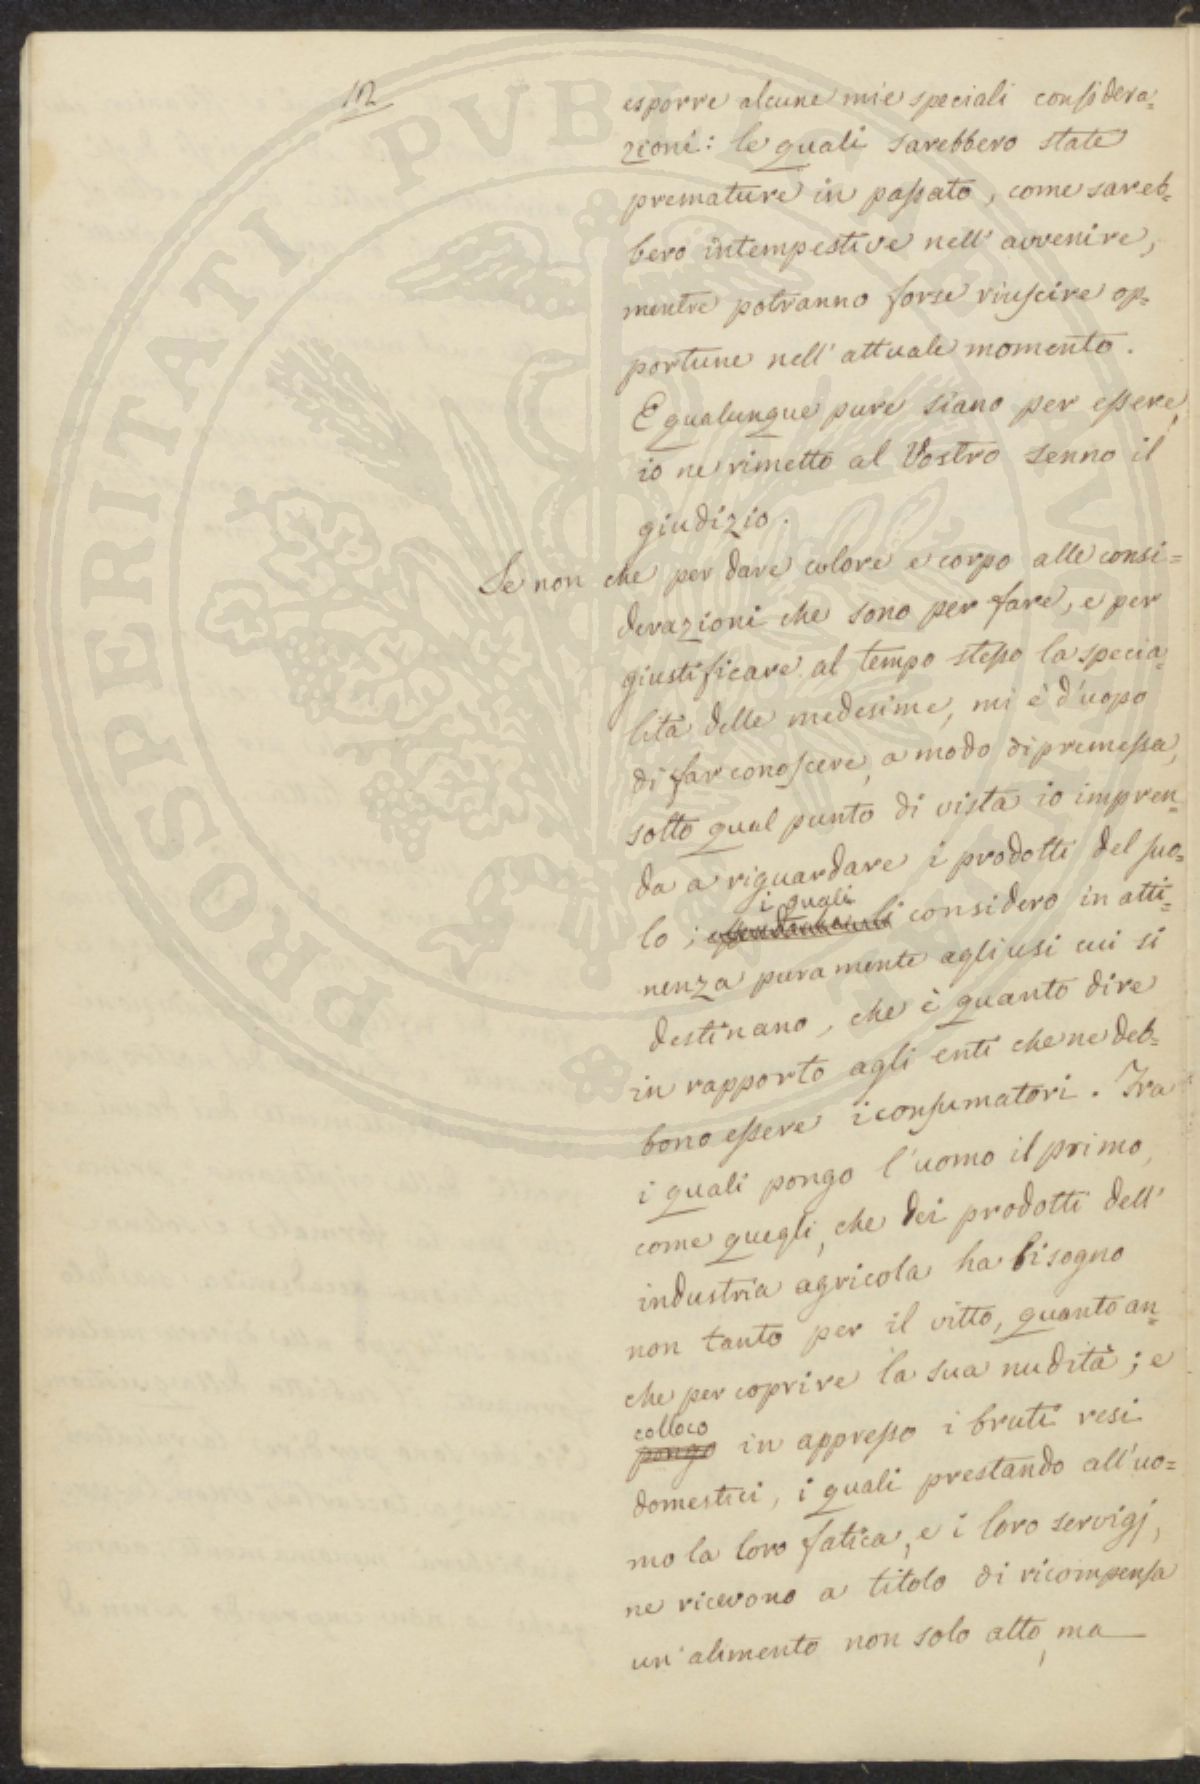 12
esporre alcune mie speciali considera=
zioni: le quali sarebbero state
premature in passato, come sareb=
bero intempestive nell'avvenire,
mentre potranno forse riuscire op=
portune nell'attuale momento.
E qualunque pure siano per essere,
io ne rimetto al Vostro senno il
giudizio.
Se non che per dare colore e corpo alle consi=
derazioni che sono per fare, e per
giustificare al tempo stesso la specia=
lità delle medesime, mi è d'uopo
di far conoscere, a modo di premessa,
sotto qual punto di vista io impren=
da a riguardare i prodotti del suo=
i quali
lo; considero in atti=
nenza puramente agli usi cui si
destinano, che è quanto dire
in rapporto agli enti che ne deb=
bono essere i consumatori. Tra
i quali pongo l'uomo il primo,
come quegli, che dei prodotti dell'
industria agricola ha bisogno
non tanto per il vitto, quanto an=
che per coprire la sua nudità; e
colloco
pongo in appresso i bruti resi
domestici, i quali prestando all'uo=
mo la loro fatica, e i loro servigj,
ne ricevono a titolo di ricompensa
un'alimento non solo atto, ma
PROSPERITATI PUBLICAE